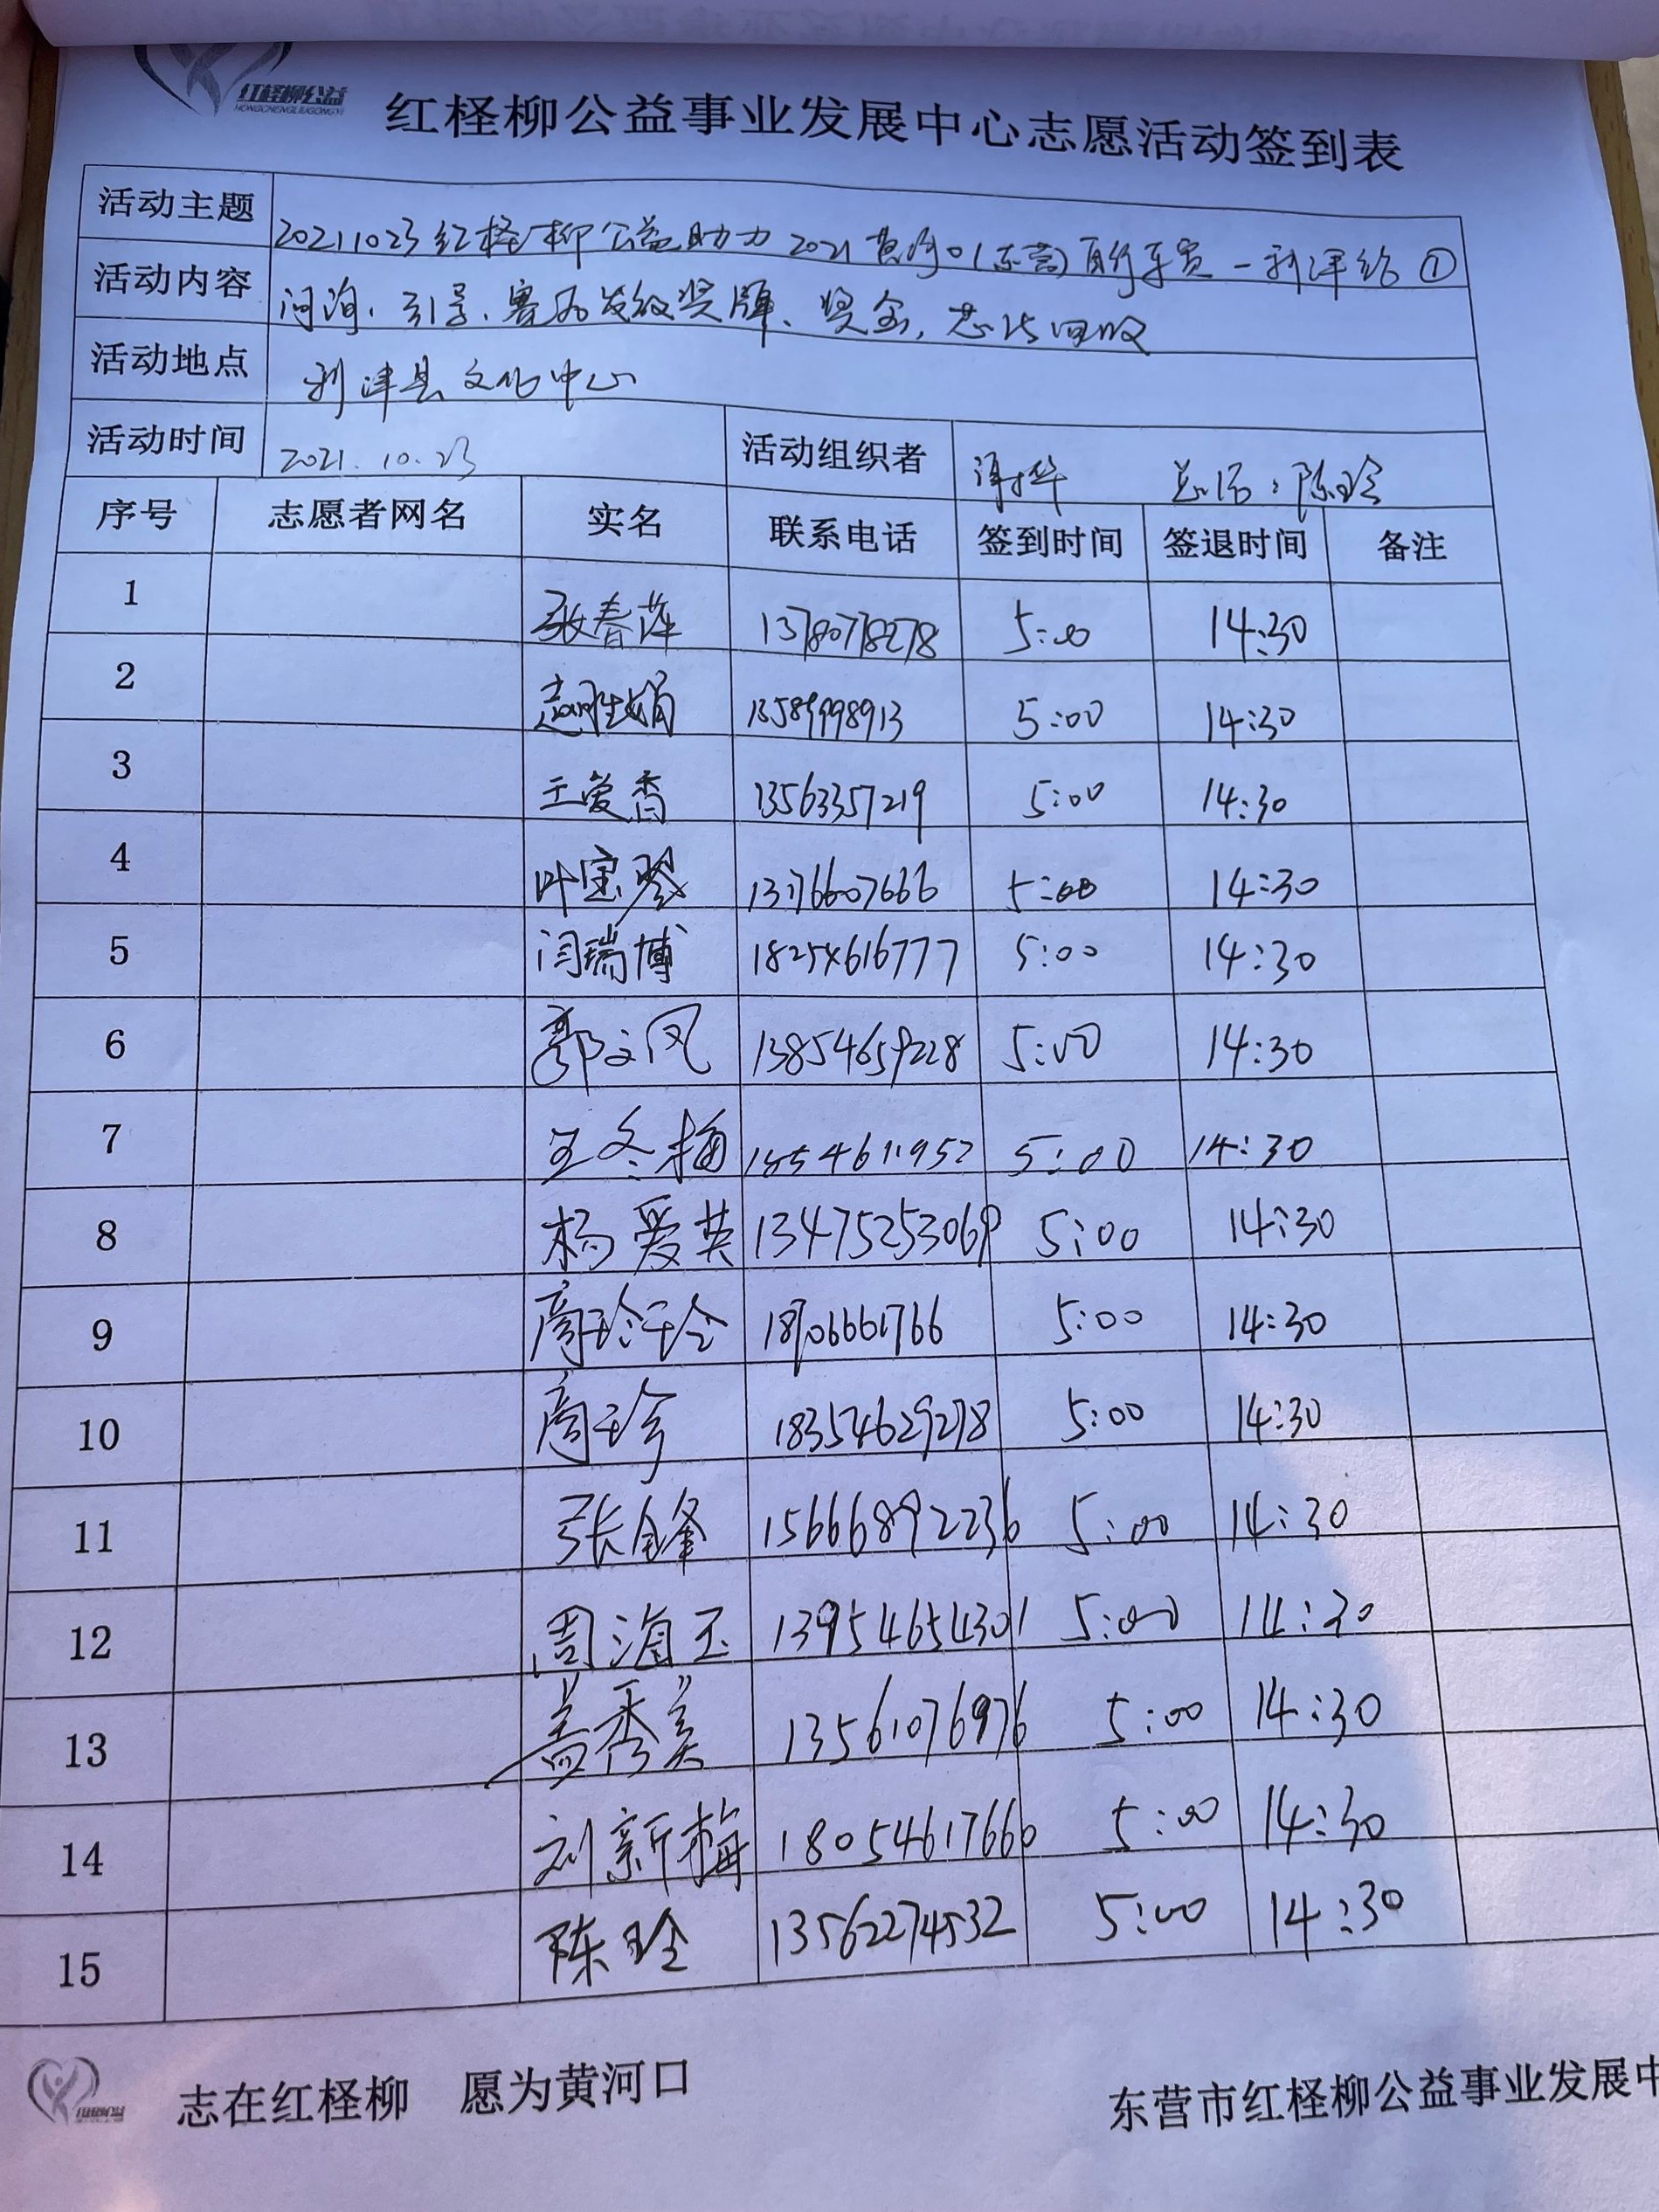 红柽柳公益
HONGCHENGLIUGONGYI
红柽柳公益事业发展中心志愿活动签到表
活动主题 20211023红柽柳公益助力2021黄河口(东营)自行车赛-利津站①
活动内容 问询、引导、赛后发放奖牌、奖金,芯片回收
活动地点 利津县文化中心
活动时间 2021.10.23 活动组织者 陈玲
序号 志愿者网名 实名 联系电话 签到时间 签退时间 备注
1 张春萍 13780778278 5:00 14:30
2 赵胜娟 13589998913 5:00 14:30
3 王爱香 13563357219 5:00 14:30
4 叶宝琴 13176607666 5:00 14:30
5 闫瑞博 18254616777 5:00 14:30
6 郭文凤 13854659228 5:00 14:30
7 王冬梅 5:00 14:30
8 杨爱英 13475253069 5:00 14:30
9 商玲玲 5:00 14:30
10 商珍 18354629278 5:00 14:30
11 张锋 15666892236 5:00 14:30
12 周海玉 13954654301 5:00 14:30
13 盖秀美 13561076976 5:00 14:30
14 刘新梅 18054617660 5:00 14:30
15 陈玲 13562274532 5:00 14:30
志在红柽柳 愿为黄河口
东营市红柽柳公益事业发展中